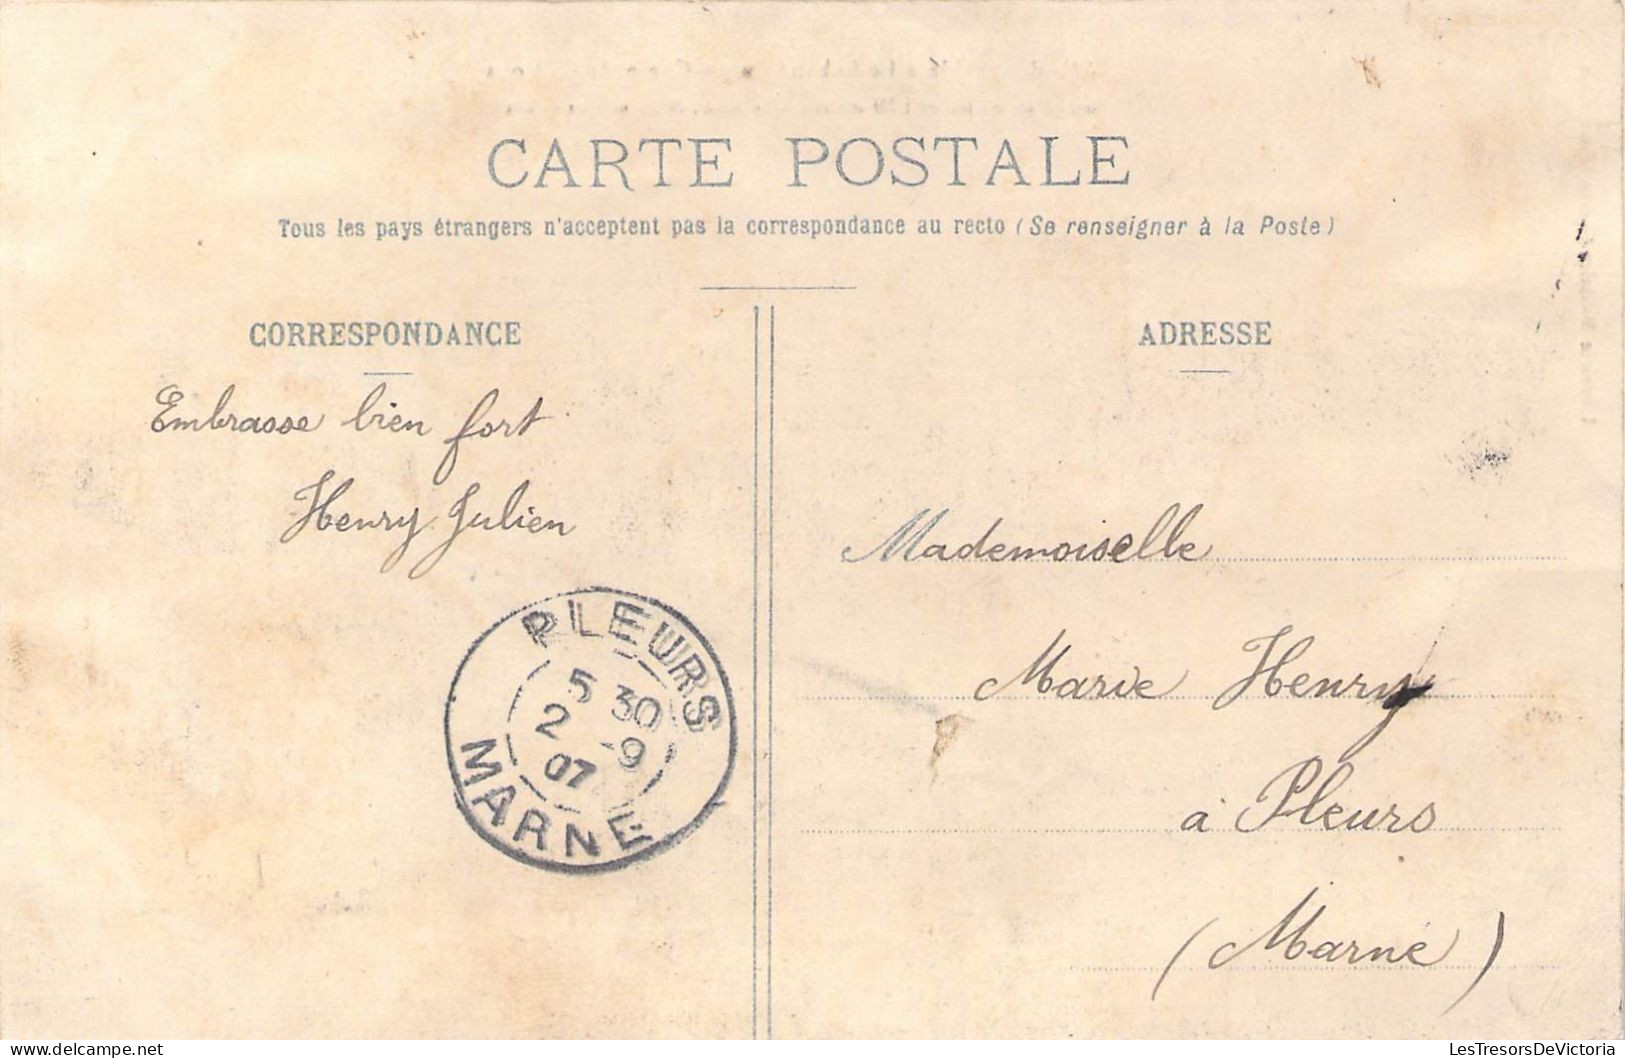 CARTE POSTALE
Tous les pays étrangers n'acceptent pas la correspondance au recto (Se renseigner à la Poste)
CORRESPONDANCE
Embrasse bien fort
Henry Julien
PLEURS
5 30
2 -9
07
MARNE
ADRESSE
Mademoiselle
Marie Henry
à Pleurs
(Marne)
LesTresorsDeVictoria